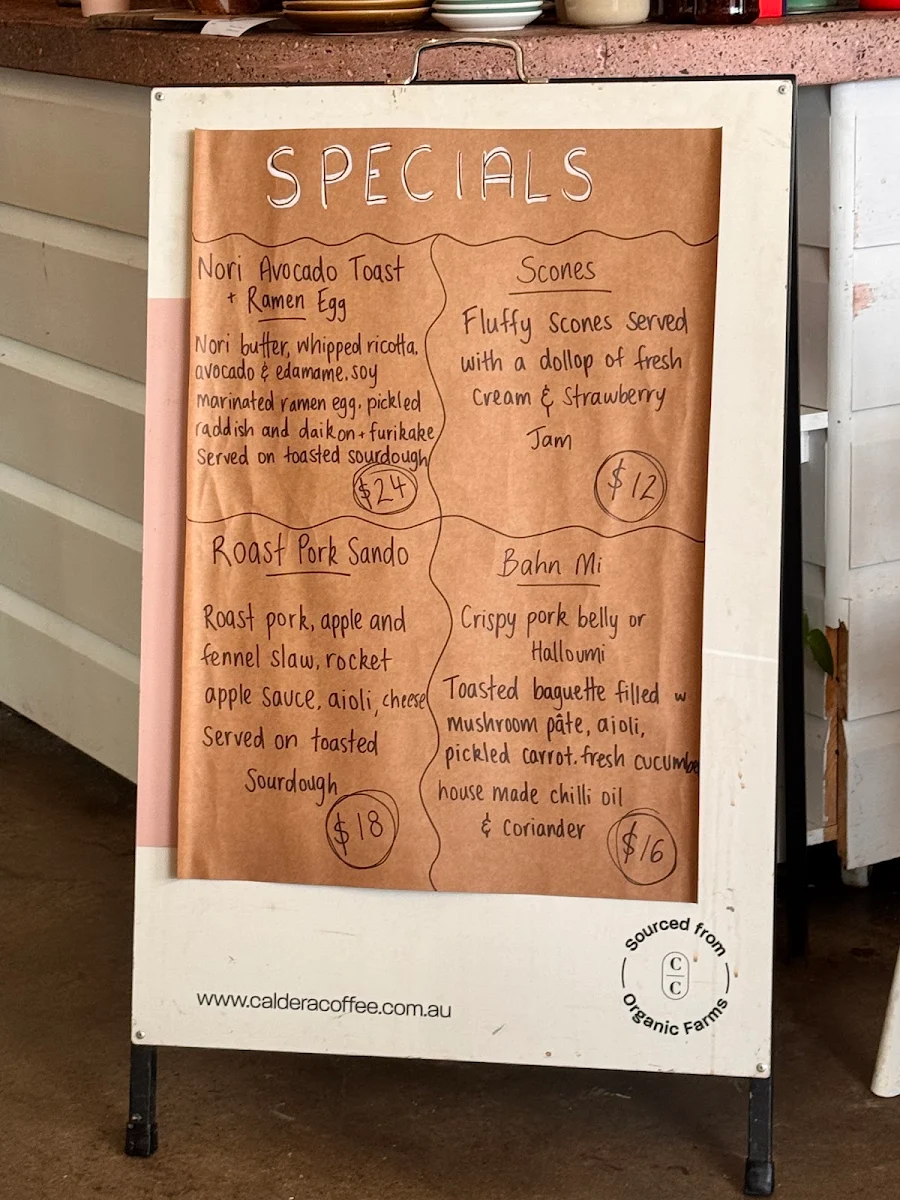 SPECIALS
Nori Avocado Toast
+ Ramen Egg
Nori butter, whipped ricotta,
avocado & edamame, soy
marinated ramen egg, pickled
raddish and daikon + furikake
Served on toasted sourdough
$24
Scones
Fluffy Scones Served
with a dollop of fresh
Cream & Strawberry
Jam
$12
Roast Pork Sando
Roast pork, apple and
fennel slaw, rocket
apple sauce, aioli, cheese
Served on toasted
Sourdough
$18
Bahn Mi
Crispy pork belly or
Halloumi
Toasted baguette filled w
mushroom pâte, aioli,
pickled carrot, fresh cucumber
house made chilli oil
& Coriander
$16
www.calderacoffee.com.au
Sourced from
C
C
Organic Farms